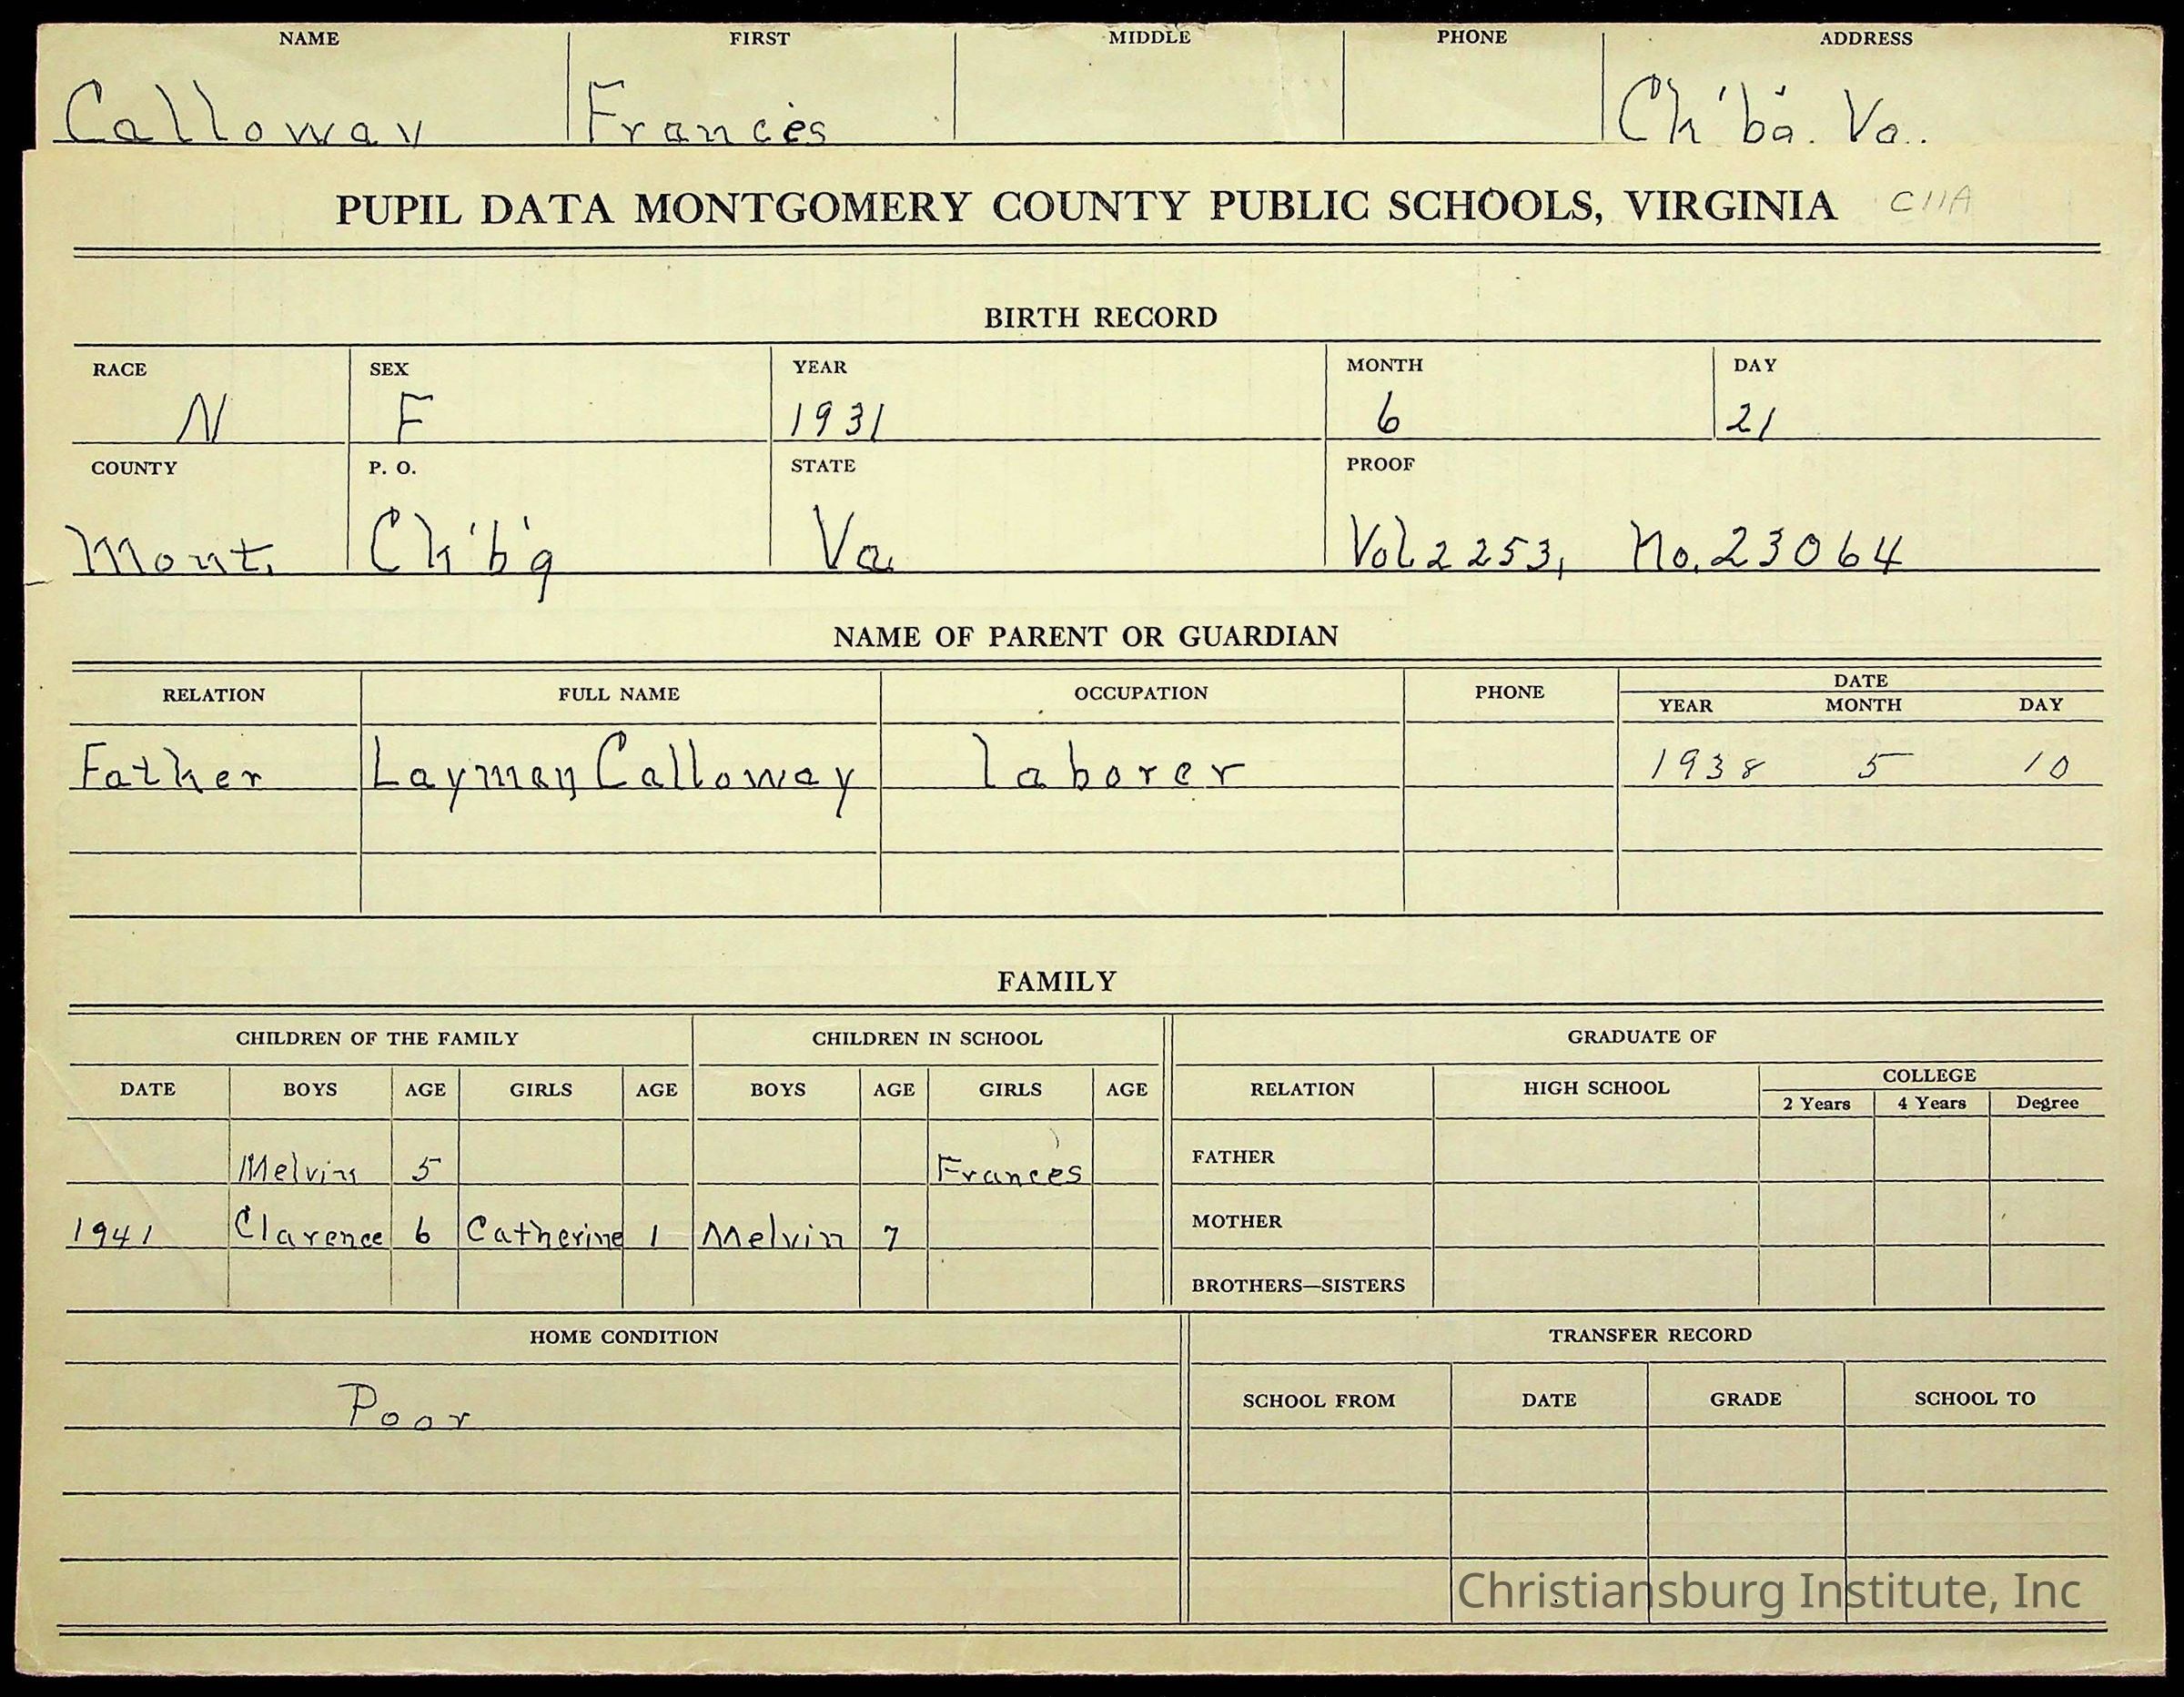 NAME FIRST MIDDLE PHONE ADDRESS
Calloway Frances Ch'b'g. Va.
PUPIL DATA MONTGOMERY COUNTY PUBLIC SCHOOLS, VIRGINIA C11A
BIRTH RECORD
RACE SEX YEAR MONTH DAY
N F 1931 6 21
COUNTY P. O. STATE PROOF
Mont. Ch'b'g Va. Vol. 2253, No. 23064
NAME OF PARENT OR GUARDIAN
RELATION FULL NAME OCCUPATION PHONE DATE
YEAR MONTH DAY
Father Layman Calloway laborer 1938 5 10
FAMILY
CHILDREN OF THE FAMILY CHILDREN IN SCHOOL GRADUATE OF
DATE BOYS AGE GIRLS AGE BOYS AGE GIRLS AGE RELATION HIGH SCHOOL COLLEGE
2 Years 4 Years Degree
Melvin 5 Frances FATHER
1941 Clarence 6 Catherine 1 Melvin 7 MOTHER
BROTHERS—SISTERS
HOME CONDITION TRANSFER RECORD
Poor SCHOOL FROM DATE GRADE SCHOOL TO
Christiansburg Institute, Inc